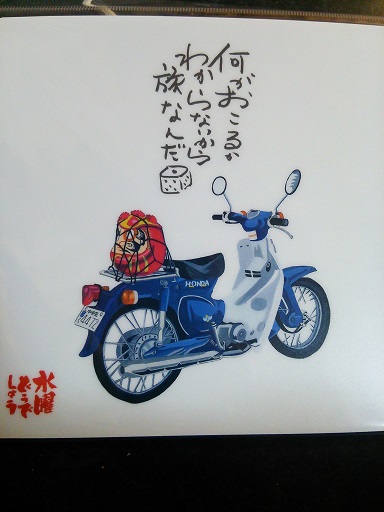 何がおこるか
わからないから
旅なんだ
HONDA
水曜
どうで
しょう